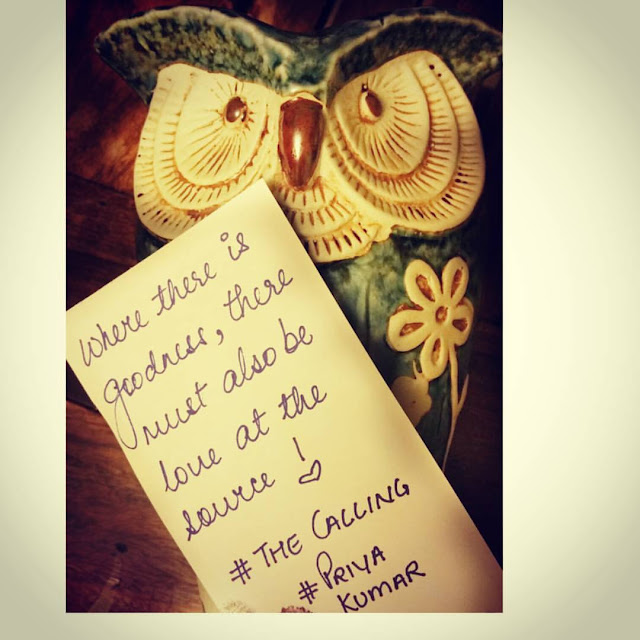 Where there is
goodness, there
must also be
love at the
source !
# THE CALLING
# PRIYA
KUMAR